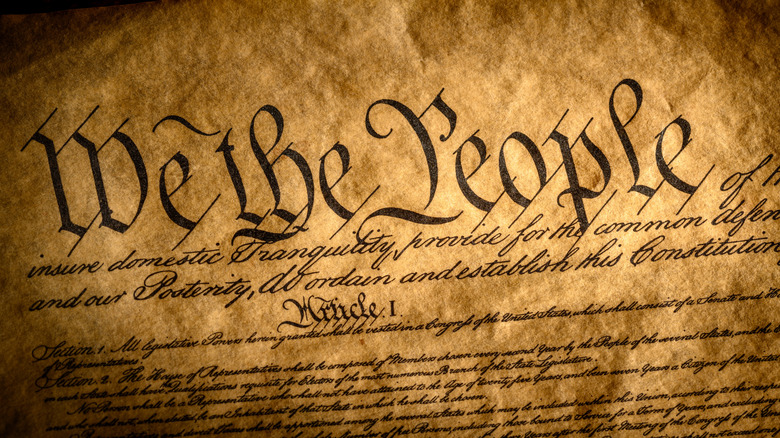 We the People of
insure domestic Tranquility, provide for the common defen
and our Posterity, do ordain and establish this Constitution
Article. I.
Section. 1. All legislative Powers herein granted shall be vested in a Congress of the United States, which shall consist of a Senate and
of Representatives.
Section. 2. The House of Representatives shall be composed of Members chosen every second Year by the People of the several States, and the
in each State shall have the Qualifications requisite for Electors of the most numerous Branch of the State Legislature.
No Person shall be a Representative who shall not have attained to the Age of twenty five Years, and been seven Years a Citizen of the United
and who shall not, when elected, be an Inhabitant of that State in which he shall be chosen.
Representatives and direct Taxes shall be apportioned among the several States which may be included within this Union, according to their
Free Persons, including those bound to Service for a Term of Years, and
Years after the first Meeting of the Congress of the